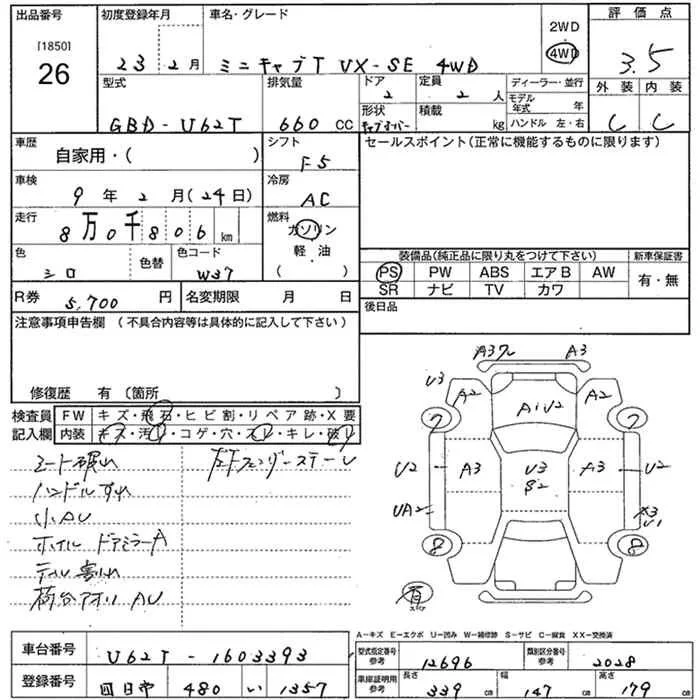 出品番号
[1850]
26
初度登録年月
23 2月
車名・グレード
ミニキャブT VX-SE 4WD
2WD
4WD
評価点
3.5
外装 内装
C C
型式
GBD-U62T
排気量
660 CC
ドア
2
形状
定員
2 人
積載
kg
ディーラー・並行
モデル年式 年
ハンドル 左・右
車歴
自家用・( )
シフト
F5
車検
9年2月(24日)
冷房
AC
走行
8万0千806km
燃料
ガソリン
軽・油
( )
色
シロ
色替
色コード
W37
R券
5,700 円
名変期限 月 日
セールスポイント(正常に機能するものに限ります)
装備品(純正品に限り丸をつけて下さい)
PS PW ABS エアB AW
SR ナビ TV カワ
新車保証書
有・無
後日品
注意事項申告欄 (不具合内容等は具体的に記入して下さい)
修復歴 有(箇所 )
検査員
記入欄
FW キズ・飛石・ヒビ割・リペア跡・X要
内装 キズ・汚れ・コゲ・穴・スレ・キレ・破れ
シート破れ
ハンドルすれ
小AU
ホイル ドアミラーA
テール割れ
荷台アオリ AU
左Fフェンダーステー
A3 A3
U3 A2 A2
A1U2
7 7
U2 A3 U3 A3 U2
S2
UA2 A3
U1
8 8
有
スペア
A-キズ E-エクボ U-凹み W-補修跡 S-サビ C-腐食 XX-交換済
車台番号
U62T-1603393
登録番号
四日市 480 い 1357
型式指定番号
参考
12696
類別区分番号
参考
2028
車庫証明用
参考
長さ 339 cm
幅 147 cm
高さ 179 cm